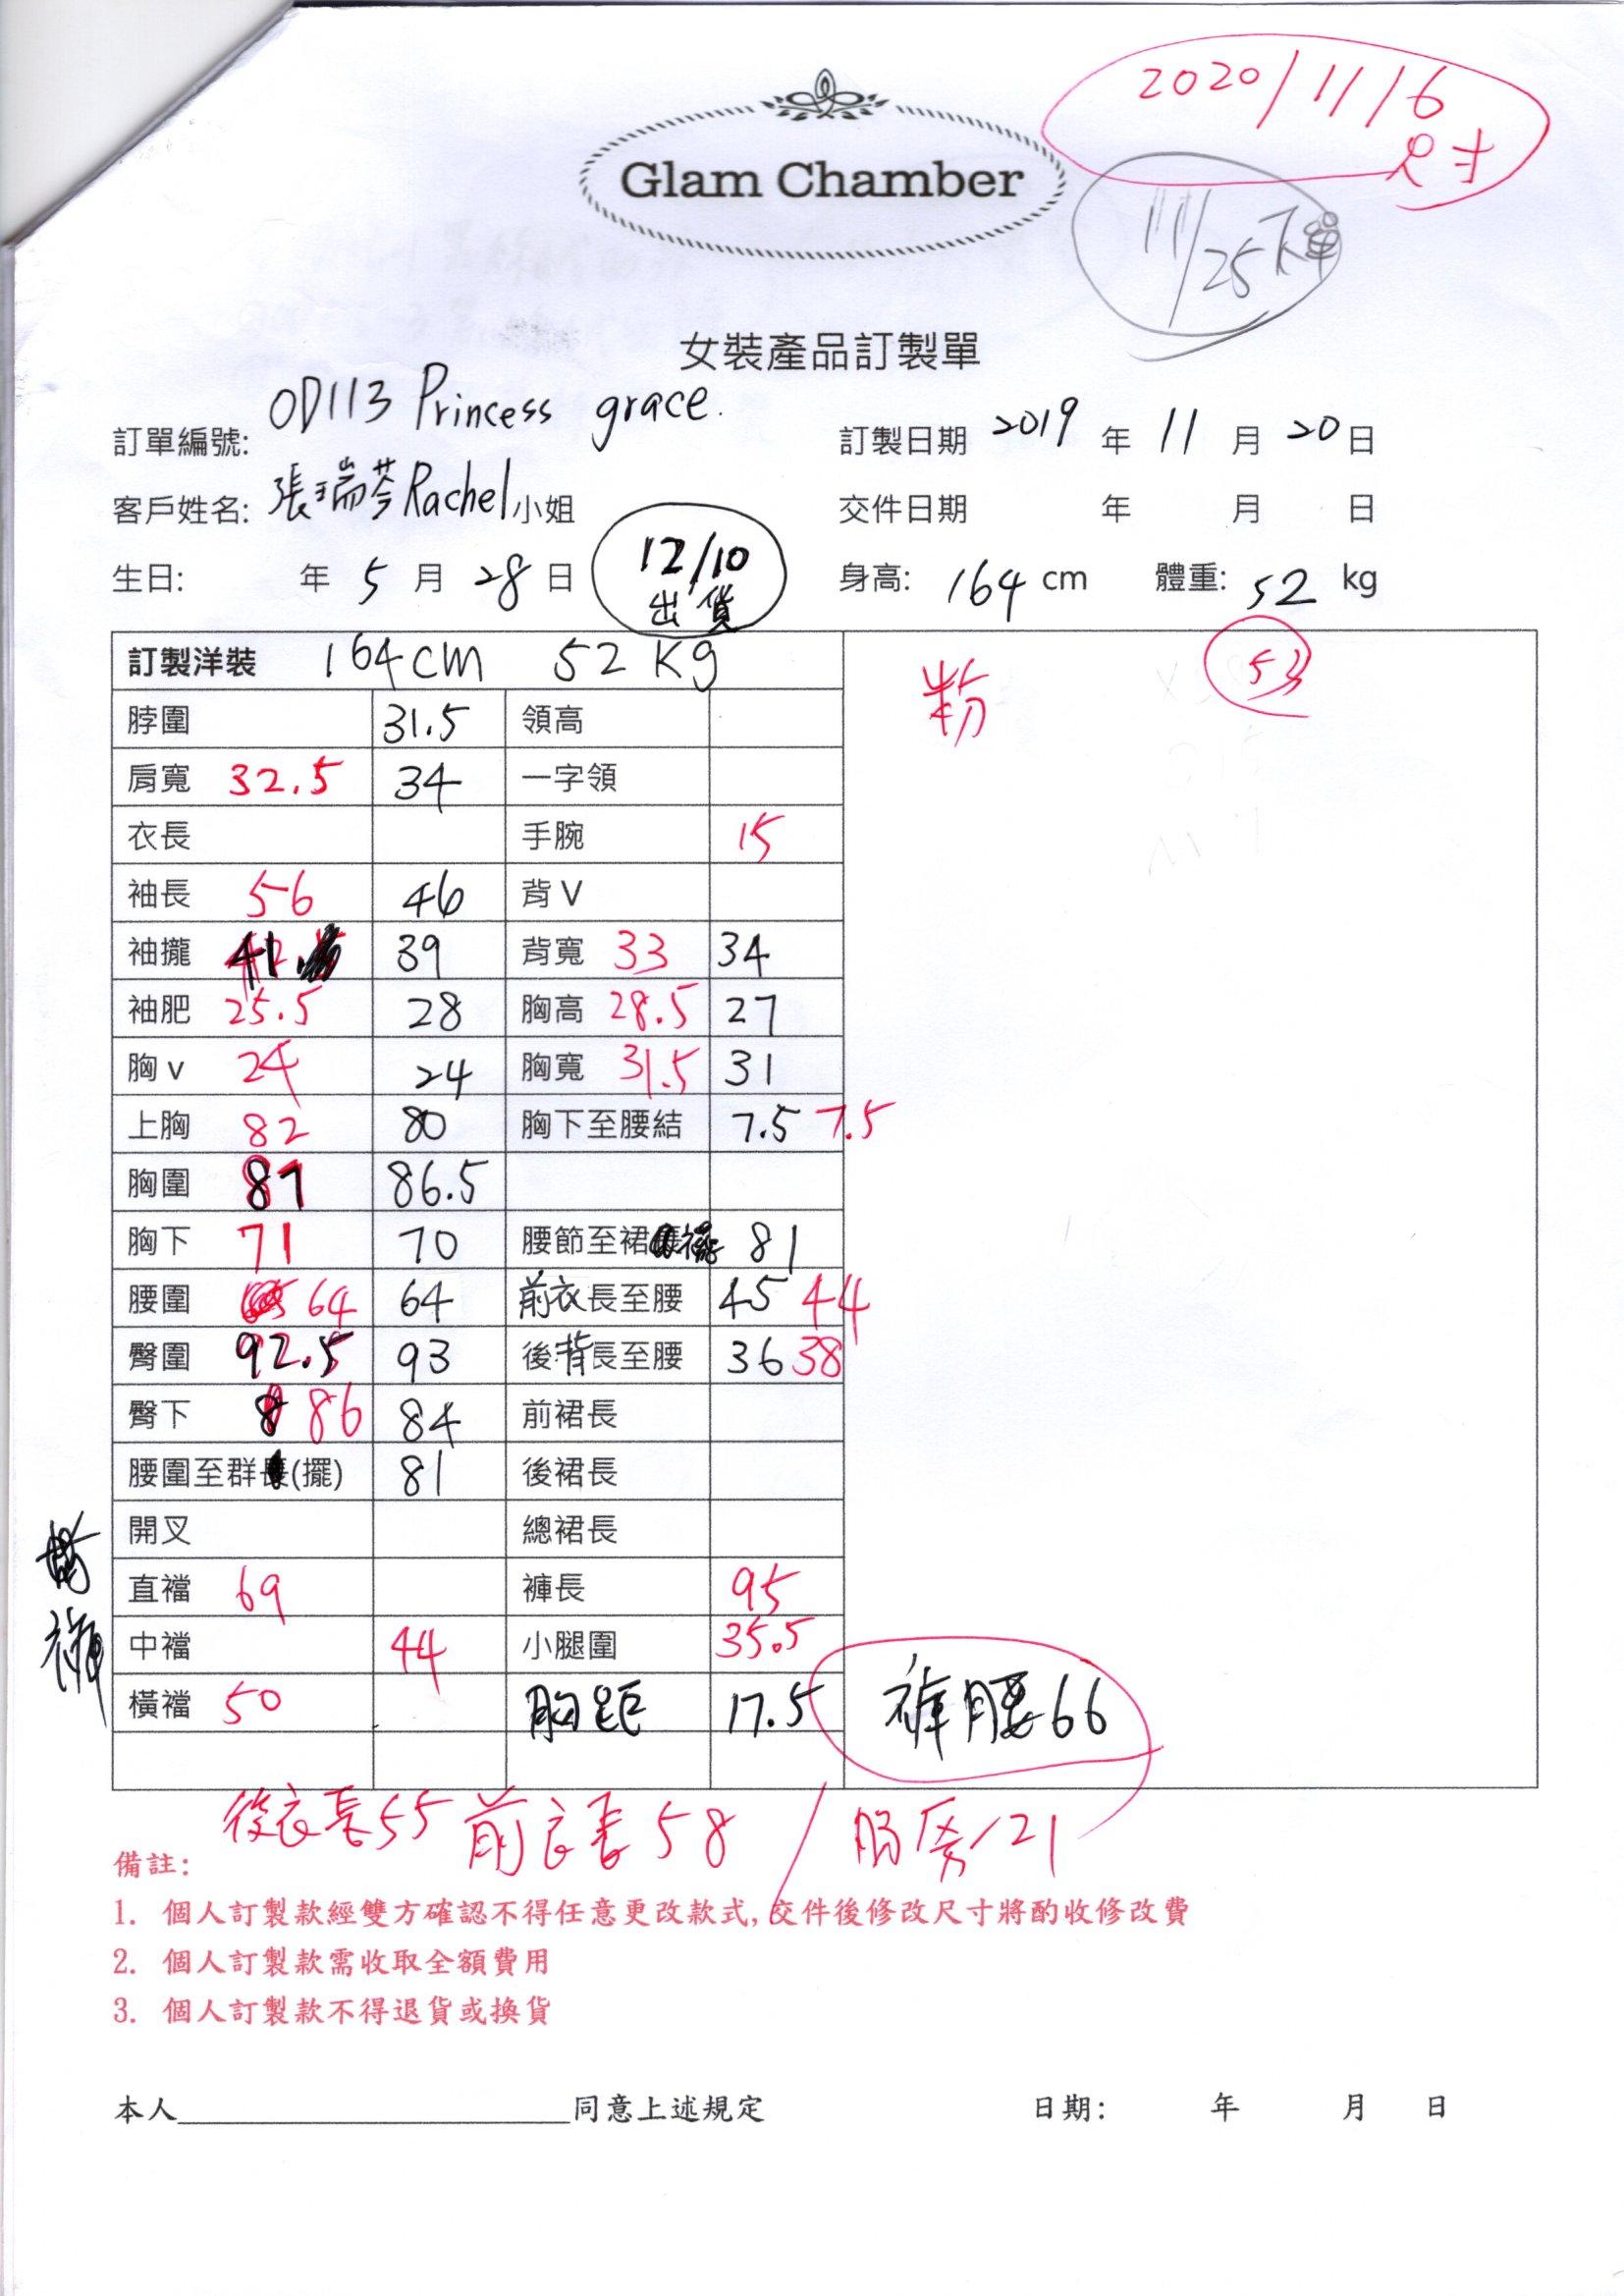 2020/11/6
尺寸
Glam Chamber
11/25 下單
女裝產品訂製單
訂單編號: OD113 Princess grace.
訂製日期 2019 年 11 月 20 日
客戶姓名: 張瑞芩 Rachel 小姐
交件日期 年 月 日
生日: 年 5 月 28 日
12/10
出貨
身高: 164 cm 體重: 52 kg
53
訂製洋裝 164cm 52Kg
粉
脖圍 31.5 領高
肩寬 32.5 34 一字領
衣長 手腕 15
袖長 56 46 背V
袖攏 41 39 背寬 33 34
袖肥 25.5 28 胸高 28.5 27
胸v 24 24 胸寬 31.5 31
上胸 82 80 胸下至腰結 7.5 7.5
胸圍 87 86.5
胸下 71 70 腰節至裙襬 81
腰圍 64 64 前衣長至腰 45 44
臀圍 92.5 93 後背長至腰 36 38
臀下 86 84 前裙長
腰圍至群(擺) 81 後裙長
開叉 總裙長
直襠 69 褲長 95
中襠 44 小腿圍 35.5
橫襠 50 胸距 17.5
褲腰66
後衣長55 前衣長58 / 21
備註:
1. 個人訂製款經雙方確認不得任意更改款式, 交件後修改尺寸將酌收修改費
2. 個人訂製款需收取全額費用
3. 個人訂製款不得退貨或換貨
本人 同意上述規定
日期: 年 月 日